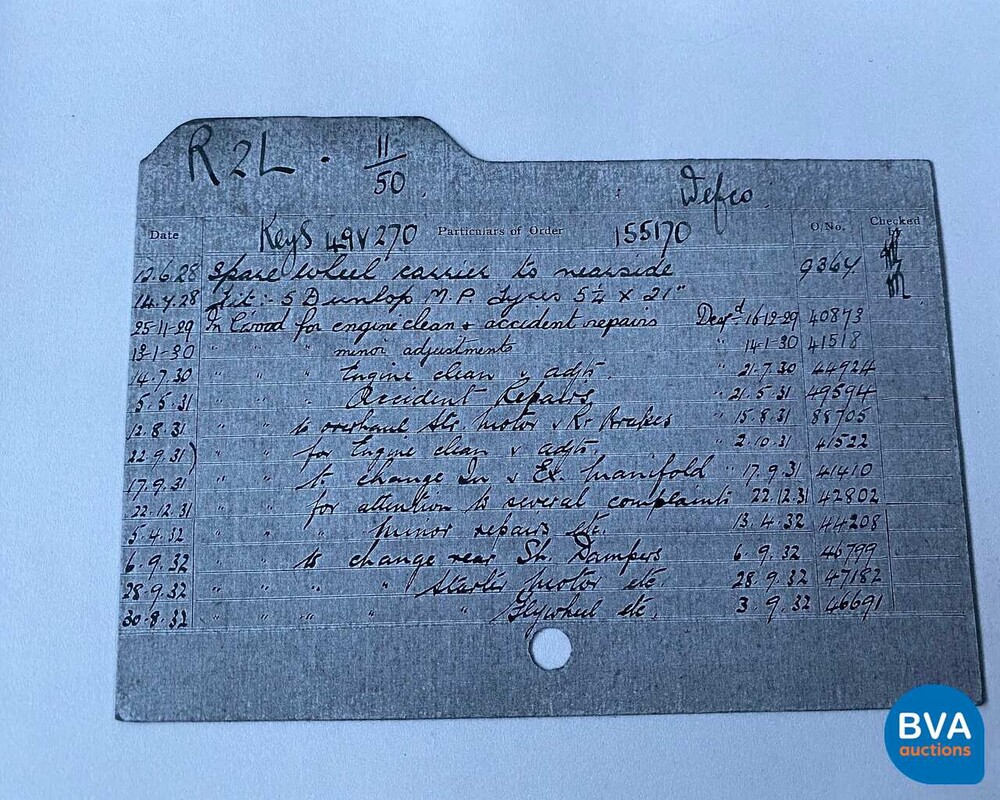 R 2 L . 11/50
Wefco
Date Keys 49V270 Particulars of Order 155170 O/No. Checked
12.6.28 Spare wheel carrier to nearside 9364
14.7.28 Fit:- 5 Dunlop M.P. Tyres 5¼ x 21"
25-11-29 In C'wood for engine clean & accident repairs Desp'd 16-12-29 40873
13-1-30 " " " minor adjustments " 14-1-30 41518
14.7.30 " " " Engine clean & adjts. " 21.7.30 44924
5.5.31 " " " Accident Repairs " 21.5.31 49594
12.8.31 " " to overhaul Str. Motor & Rr Brakes " 15.8.31 85705
22.9.31) " " for Engine clean & adjts. " 2.10.31 41522
17.9.31 " " to change In & Ex. Manifold " 17.9.31 41410
22.12.31 " " for attention to several complaints 22.12.31 42802
5.4.32 " " " minor repairs etc. 13.4.32 44208
6.9.32 " " to change rear Sh. Dampers 6.9.32 46799
28.9.32 " " " " Starter Motor etc. 28.9.32 47182
30.8.32 " " " " " Flywheel etc. 3.9.32 46691
BVA
auctions